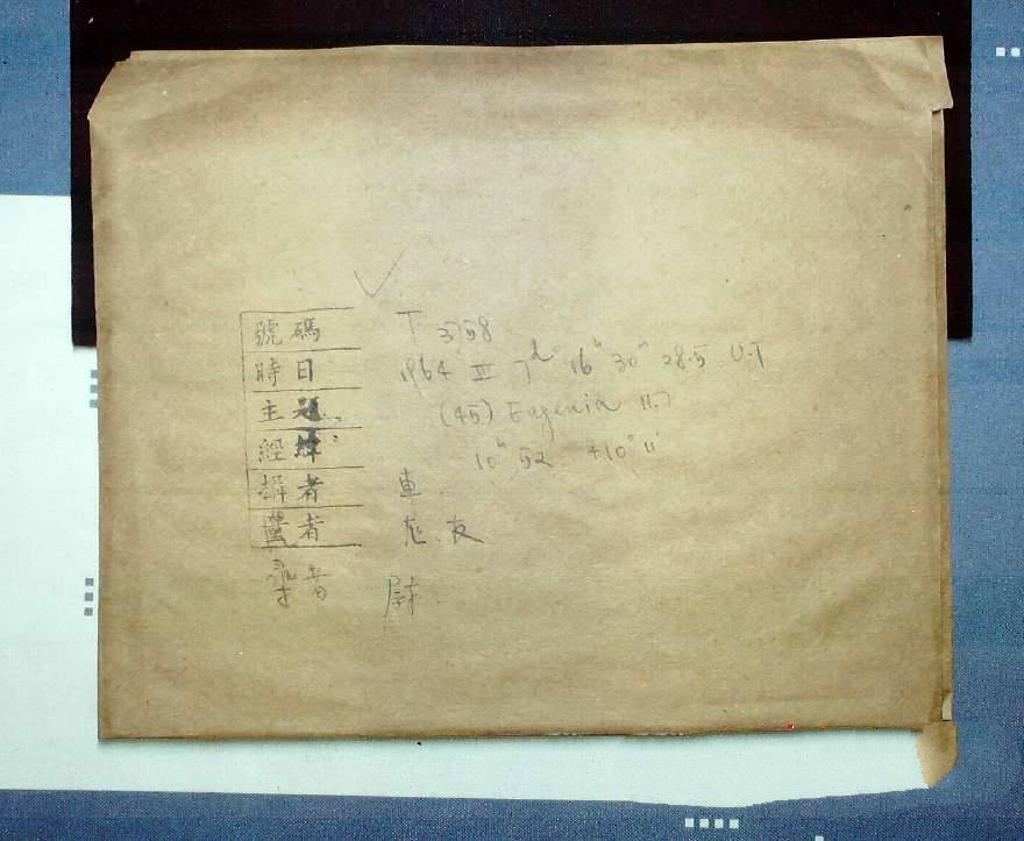 號碼 T 3758
時日 1964 III 7d 16h 30m 28.5 U.T
主題 (45) Eugenia 11.7
經緯 10h 52 +10° 11'
攝者 車
者 友
者 尉